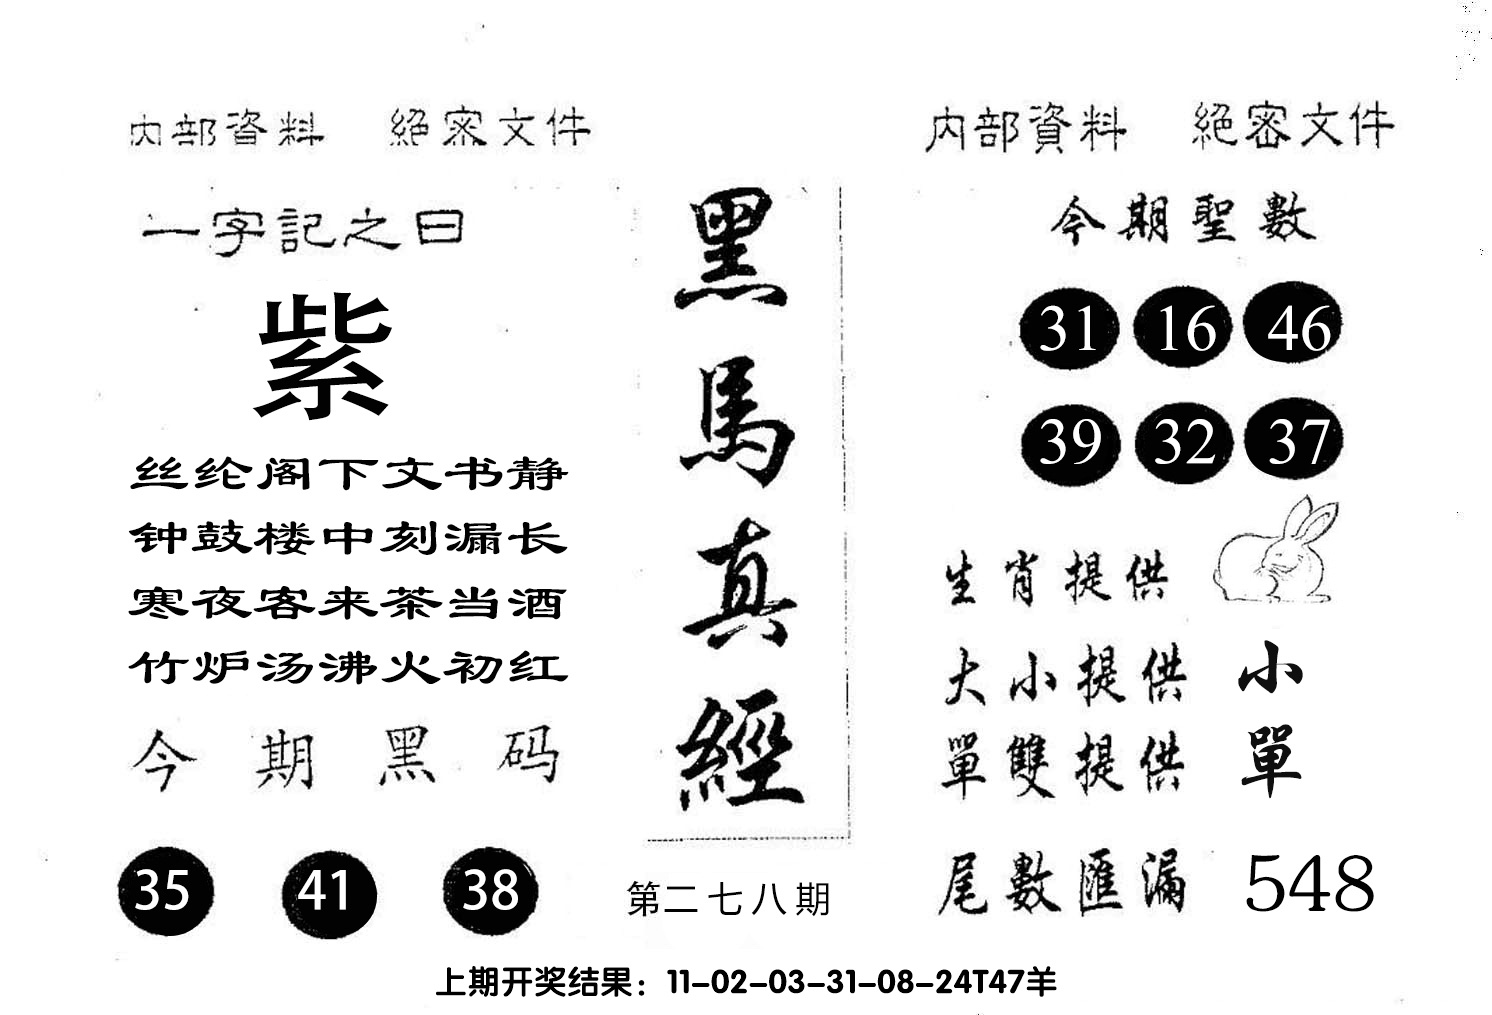 内部資料 絕密文件
一字記之曰
紫
丝纶阁下文书静
钟鼓楼中刻漏长
寒夜客来茶当酒
竹炉汤沸火初红
今期黑码
35 41 38
黑馬真經
第二七八期
内部資料 絕密文件
今期聖數
31 16 46
39 32 37
生肖提供
大小提供 小
單雙提供 單
尾數匯漏 548
上期开奖结果：11-02-03-31-08-24T47羊